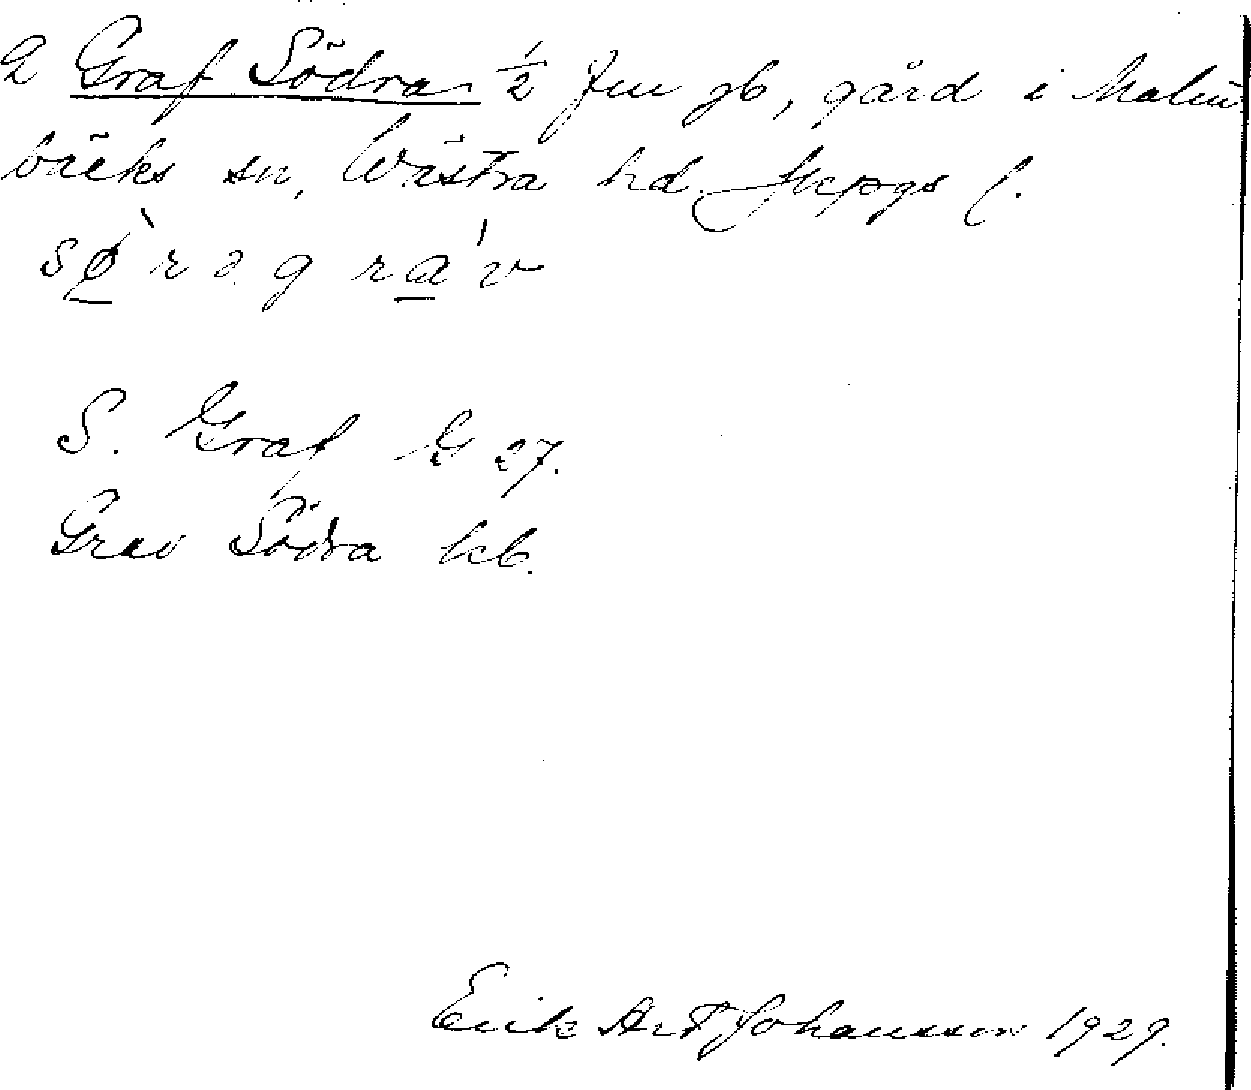 2 Graf Södra ½ fm gb, gård i Malm
bäcks sn, Wästra hd, Jkpgs l.
sø̀rəgráv
S. Graf G 27.
Grav Södra kb.
Erik Art Johansson 1929.